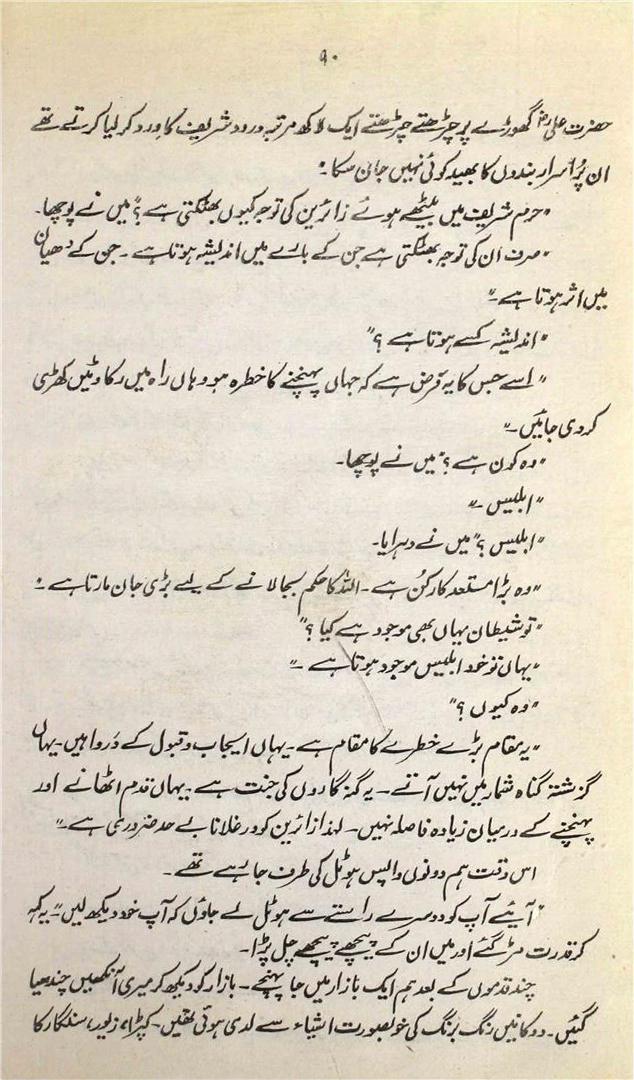 ۹۰
حضرت علیؓ گھوڑے پر چڑھتے چڑھتے ایک لاکھ مرتبہ درود شریف کا ورد کر لیا کرتے تھے
ان پُراسرار بندوں کا بھید کوئی نہیں جان سکا۔"
"حرم شریف میں بیٹھے ہوئے زائرین کی توجہ کیوں بھٹکتی ہے؟" میں نے پوچھا۔
"صرف ان کی توجہ بھٹکتی ہے جن کے بارے میں اندیشہ ہوتا ہے۔ جن کے دھیان
میں اثر ہوتا ہے۔"
"اندیشہ کسے ہوتا ہے؟"
"اسے جس کا یہ فرض ہے کہ جہاں پہنچنے کا خطرہ ہو وہاں راہ میں رکاوٹیں کھڑی
کر دی جائیں۔"
"وہ کون ہے؟" میں نے پوچھا۔
"ابلیس۔"
"ابلیس؟" میں نے دہرایا۔
"وہ بڑا مستعد کارکن ہے۔ اللہ کا حکم بجا لانے کے لیے بڑی جان مارتا ہے۔"
"تو شیطان یہاں بھی موجود ہے کیا؟"
"یہاں تو خود ابلیس موجود ہوتا ہے۔"
"وہ کیوں؟"
"یہ مقام بڑے خطرے کا مقام ہے۔ یہاں ایجاب و قبول کے در وا ہیں۔ یہاں
گزشتہ گناہ شمار میں نہیں آتے۔ یہ گنہگاروں کی جنت ہے۔ یہاں قدم اٹھانے اور
پہنچنے کے درمیان زیادہ فاصلہ نہیں۔ لہذا زائرین کو ورغلانا بے حد ضروری ہے۔"
اس وقت ہم دونوں واپس ہوٹل کی طرف جا رہے تھے۔
"آئیے آپ کو دوسرے راستے سے ہوٹل لے جاؤں کہ آپ خود دیکھ لیں۔" یہ کہہ
کر قدرت مڑ گئے اور میں ان کے پیچھے پیچھے چل پڑا۔
چند قدموں کے بعد ہم ایک بازار میں جا پہنچے۔ بازار کو دیکھ کر میری آنکھیں چندھیا
گئیں۔ دوکانیں رنگ برنگ کی خوبصورت اشیاء سے لدی ہوئی تھیں۔ کپڑا، زیور، سنگار کا